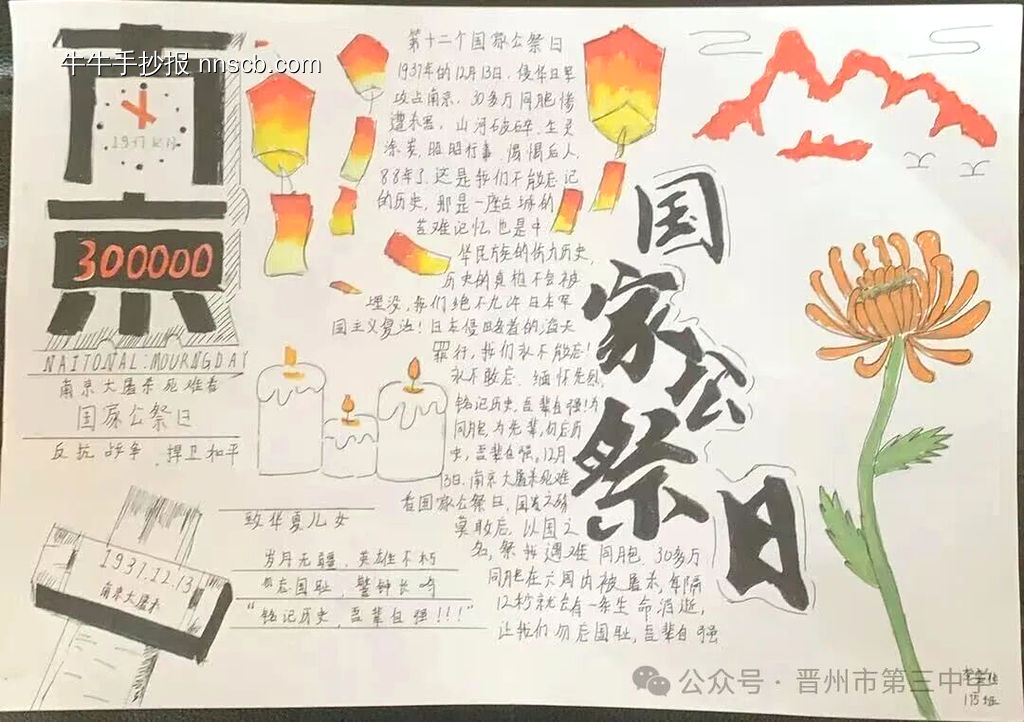 牛牛手抄报 nnscb.com
南京
300000
NAITONAL:MOURNGDAY
南京大屠杀死难者
国家公祭日
反抗战争，捍卫和平
1937.12.13
南京大屠杀
第十二个国家公祭日
1937年的12月13日，侵华日军
攻占南京，30多万同胞惨
遭杀害，山河破碎，生灵
涂炭，昭昭行事，惕惕后人，
88年了，这是我们不能忘记
的历史，那是一座古城的
苦难记忆，也是中
华民族的伤力历史，
历史的真相不会被
埋没，我们绝不允许日本军
国主义复活！日本侵略者的滔天
罪行，我们永不能忘！
永不敢忘，缅怀先烈，
铭记历史，吾辈自强！为
同胞，为先辈，勿忘历
史，吾辈自强。12月
13日，南京大屠杀死难
者国家公祭日，国之殇
莫敢忘，以国之
名，祭我遇难同胞，30多万
同胞在六周内被屠杀，每隔
12秒就会有一条生命消逝，
让我们勿忘国耻，吾辈自强
致华夏儿女
岁月无疆，英雄不朽
勿忘国耻，警钟长鸣
“铭记历史，吾辈自强！！！”
国家公祭日
175班
公众号·晋州市第三中学